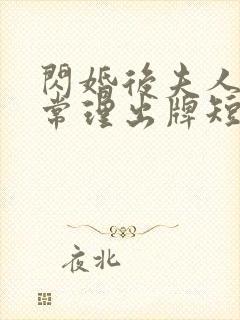 閃婚後夫人
常理出牌短
夜北